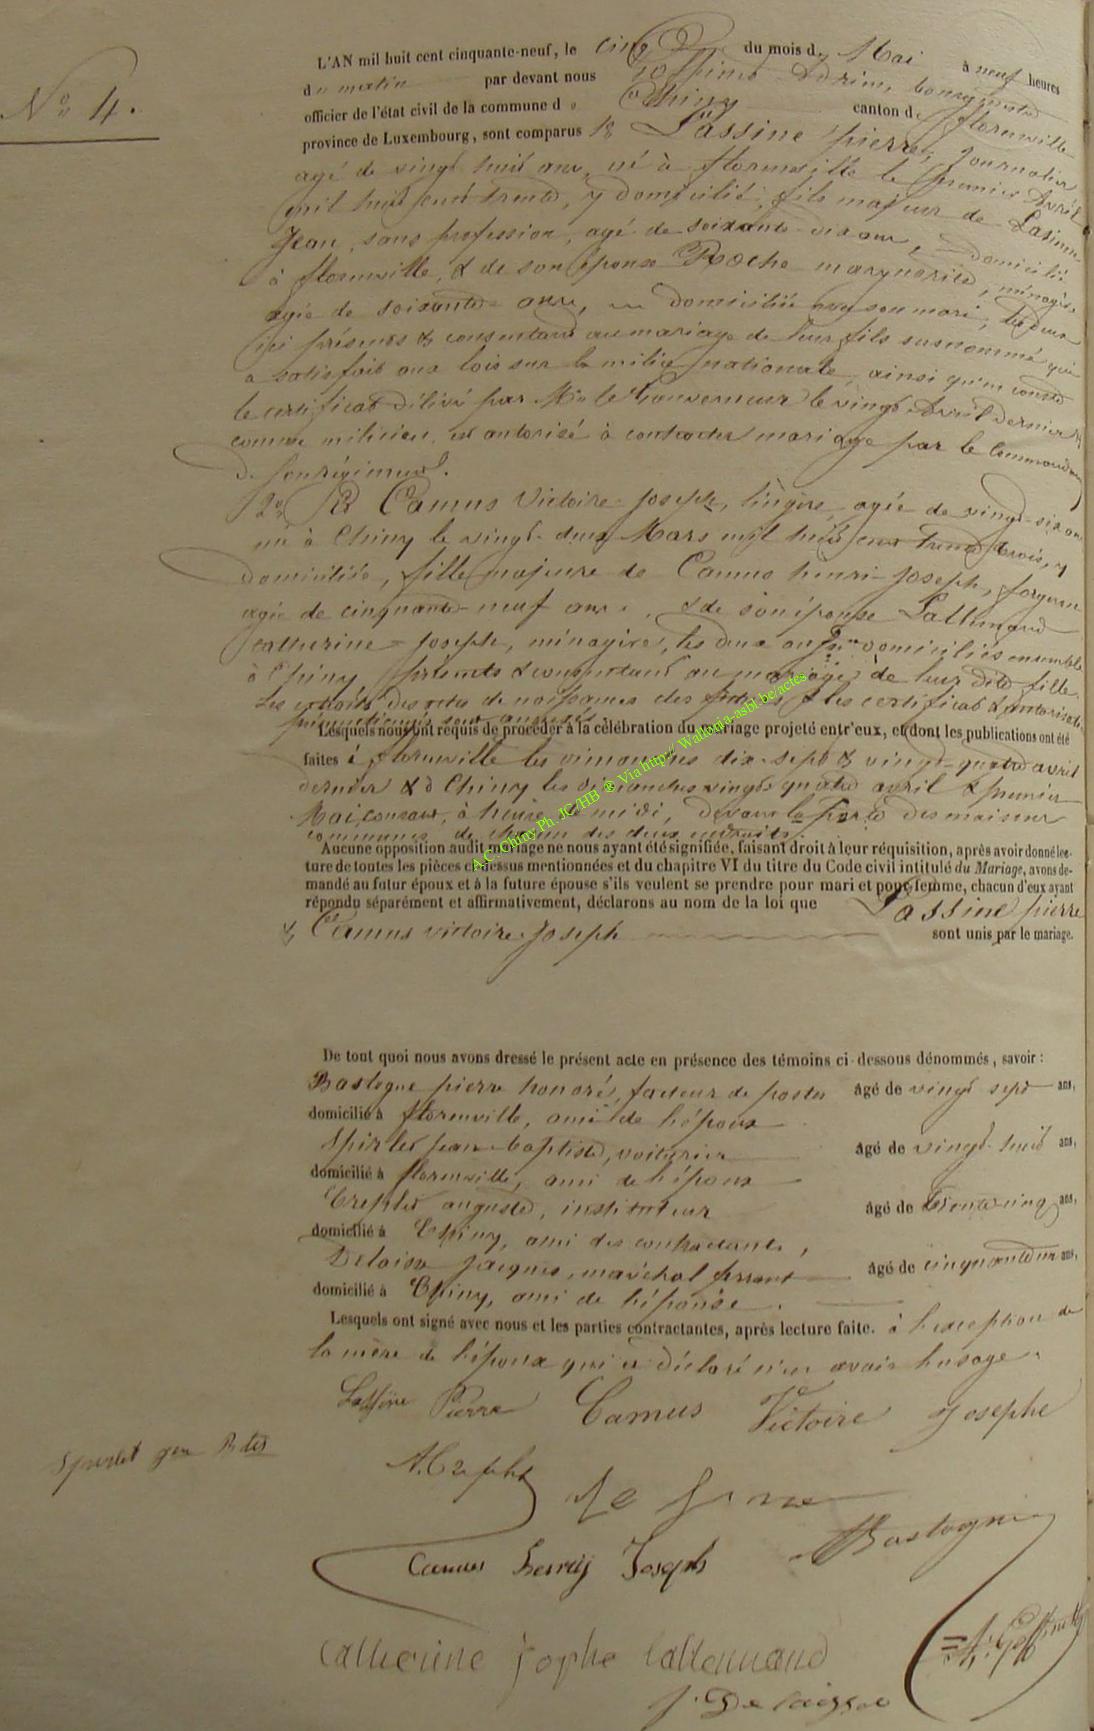 N° 4.
L'AN mil huit cent cinquante-neuf, le cinq du mois de Mai à neuf heures
du matin par devant nous Adrien, bourgmestre
officier de l'état civil de la commune de Chiny canton de florenville
province de Luxembourg, sont comparus 1° Lassine pierre, journalier
agé de vingt huit ans, né à florenville le premier Avril
mil huit cent trente, y domicilié, fils majeur de Lassine
Jean, sans profession, agé de soixante-dix ans, domicilié
à florenville, & de son épouse Roche marguerite, ménagère,
agée de soixante ans, domiciliée avec son mari, les deux
ici présents & consentant au mariage de leur fils susnommé qui
a satisfait aux lois sur la milice nationale, ainsi qu'en conste
le certificat délivré par Mr le Gouverneur le vingt Avril dernier &
comme milicien, est autorisé à contracter mariage par le Commandant
de son régiment.
2° Camus Victoire-Joseph, lingère, agée de vingt-six ans
née à Chiny le vingt-deux Mars mil huit cent trente trois, y
domiciliée, fille majeure de Camus henri-Joseph, forgeron
agé de cinquante-neuf ans, & de son épouse Lallemand
catherine-Joseph, ménagère, les deux aussi domiciliés ensemble
à Chiny présents & consentant au mariage de leur dite fille.
Les extraits des actes de naissances des futurs & les certificat & autorisation
prémentionnés sont annexés.
Lesquels nous ont requis de procéder à la célébration du mariage projeté entr'eux, et dont les publications ont été
faites à florenville les dimanches dix-sept & vingt-quatre avril
dernier & à Chiny les dimanches vingt quatre avril & premier
Mai courant, à heure de midi, devant la porte des maisons
communes de chacun des deux endroits.
Aucune opposition audit mariage ne nous ayant été signifiée, faisant droit à leur réquisition, après avoir donné lec-
ture de toutes les pièces ci-dessus mentionnées et du chapitre VI du titre du Code civil intitulé du Mariage, avons de-
mandé au futur époux et à la future épouse s'ils veulent se prendre pour mari et pour femme, chacun d'eux ayant
répondu séparément et affirmativement, déclarons au nom de la loi que Lassine pierre
& Camus victoire-Joseph sont unis par le mariage.
A.C. Chiny Ph. JC/HB ® Via http:// Wallonia-asbl.be/actes
De tout quoi nous avons dressé le présent acte en présence des témoins ci-dessous dénommés, savoir :
Bastogne pierre honoré, facteur de postes âgé de vingt sept ans,
domicilié à florenville, ami de l'époux
Spirlet jean-baptiste, voiturier âgé de vingt-huit ans,
domicilié à florenville, ami de l'époux
Auguste, instituteur âgé de trente cinq ans,
domicilié à Chiny, ami des contractants,
Delaisse Jacques, maréchal ferrant âgé de cinquante un ans,
domicilié à Chiny, ami de l'épouse.
Lesquels ont signé avec nous et les parties contractantes, après lecture faite. à l'exception de
la mère de l'époux qui a déclaré n'en avoir l'usage.
Lassine Pierre Camus Victoire Josephe
Spirlet jean Bte
Bastogne
Camus Henrij Joseph
Catherine josephe lallemand
J. Delaisse